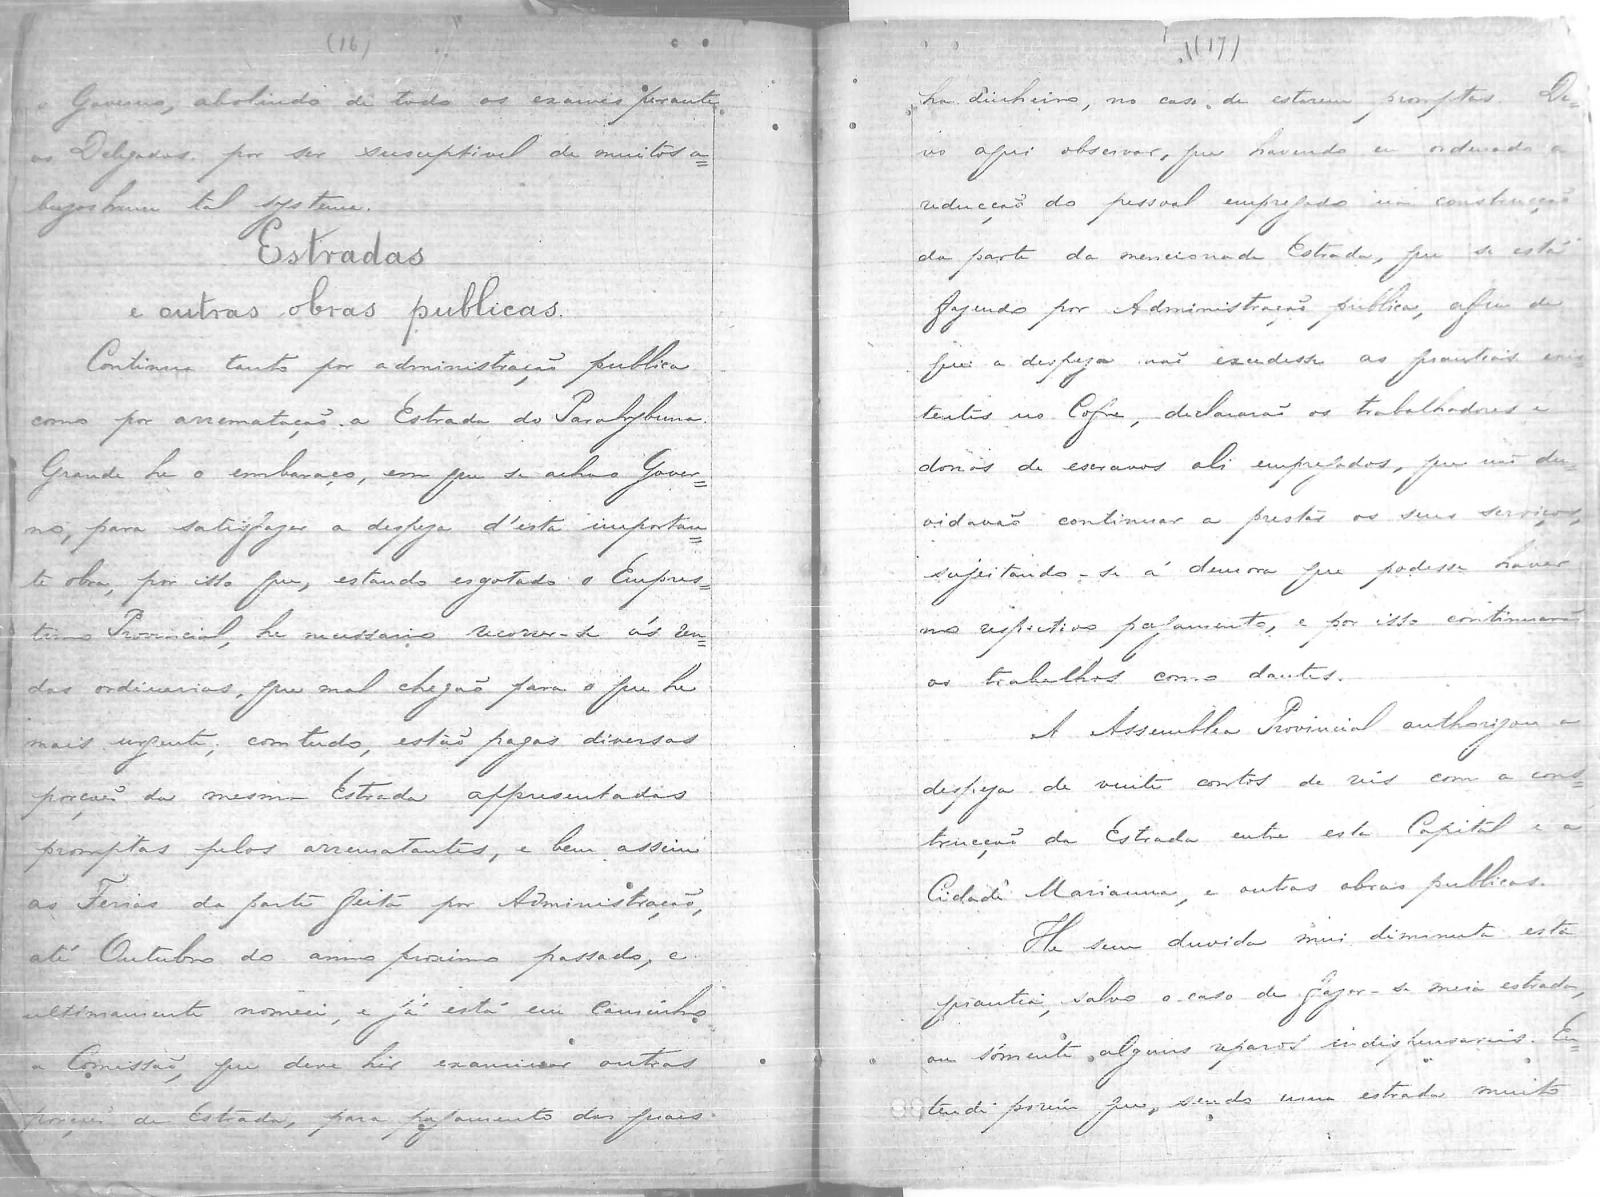 (16)
o Governo, abolindo de todo os exames perante
os Delegados. por ser susceptivel de muitos a=
busos hum tal systema.
Estradas
e outras obras publicas.
Continua tanto por administração publica
como por arrematação a Estrada do Parahybuna.
Grande he o embaraço, em que se acha o Gover=
no, para satisfazer a despeza d'esta importan=
te obra, por isso que, estando esgotado o Empres=
timo Provincial, he necessario recorrer-se ás ren=
das ordinarias, que mal chegão para o que he
mais urgente; comtudo, estão pagas diversas
porções da mesma Estrada appresentadas
promptas pelos arrematantes, e bem assim
as Ferias da parte feita por Administração,
até Outubro do anno proximo passado, e
ultimamente nomeei, e já está em caminho
a Comissão, que deve hir examinar outras
porções da Estrada, para pagamento das quaes
(17)
ha dinheiro, no caso de estarem promptas. De=
vo aqui observar, que havendo eu ordenado a
reducção do pessoal empregado na construcção
da parte da mencionada Estrada, que se está
fazendo por Administração publica, afim de
que a despeza não excedesse as quantias exis=
tentes no Cofre, declararão os trabalhadores e
donos de escravos ali empregados, que não du=
vidavão continuar a prestar os seus serviços,
sugeitando-se á demora que podesse haver
no respectivo pagamento, e por isso continuarão
os trabalhos como dantes.
A Assemblea Provincial authorizou a
despeza de vinte contos de réis com a cons=
trucção da Estrada entre esta Capital e a
Cidade Marianna, e outras obras publicas.
He sem duvida mui diminuta esta
quantia, salvo o caso de fazer-se meia estrada,
ou sómente alguns reparos indispensaveis. En=
tendi porém que, sendo uma estrada muito